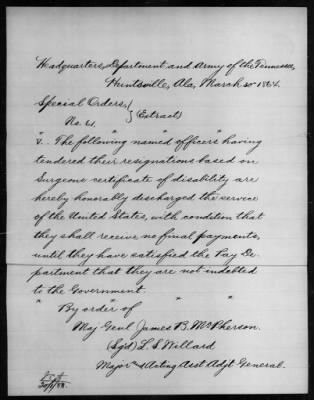 Headquarters, Department and Army of the Tennessee,
Huntsville, Ala, March 1864.
Special Orders,
No. 61. } (Extract)
V.. The following "named officers" having
tendered their resignations based on
Surgeons certificate of disability are
hereby honorably discharged the service
of the United States, with condition that
they shall receive no final payments,
until they have satisfied the Pay De-
partment that they are not indebted
to the Government.
" " " "
By order of
Maj Genl James B. McPherson.
(Sgd) L. S. Willard
Major & Acting Asst Adjt General.